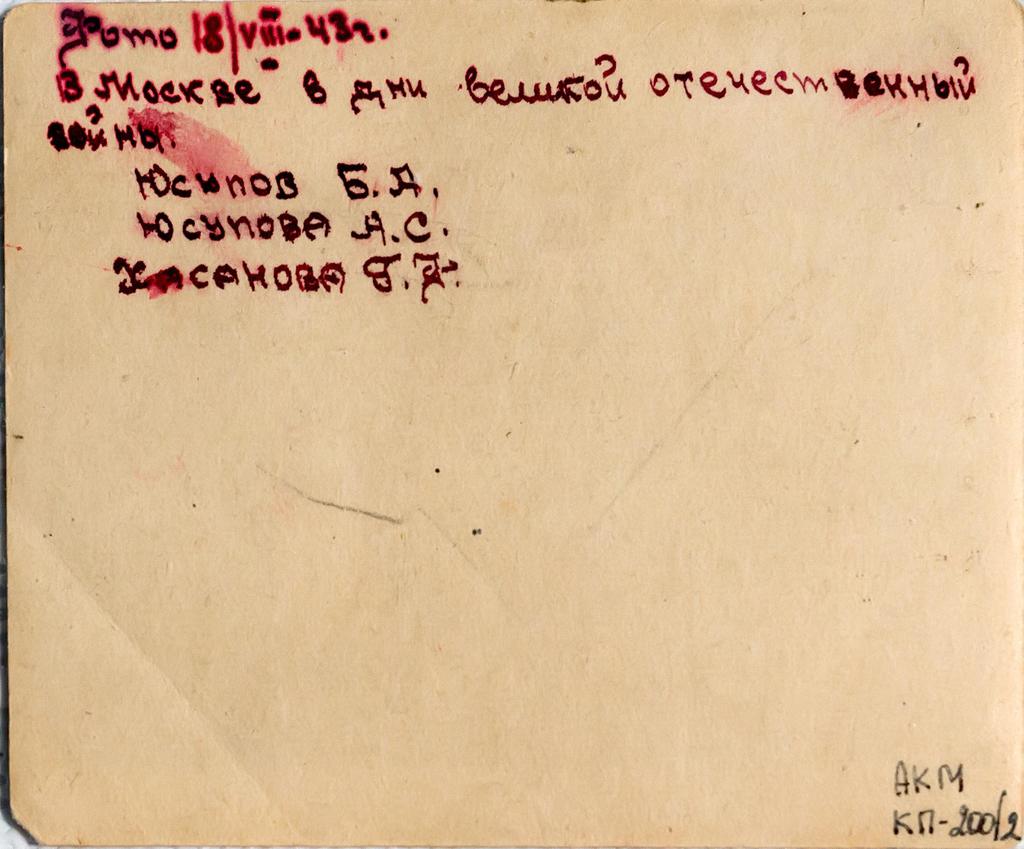 Фото 18/VIII-43г.
В Москве в дни великой отечественный
войны.
Юсупов Б.А.
Юсупова А.С.
Хасанова Г.А.
АКМ
КП-200/2